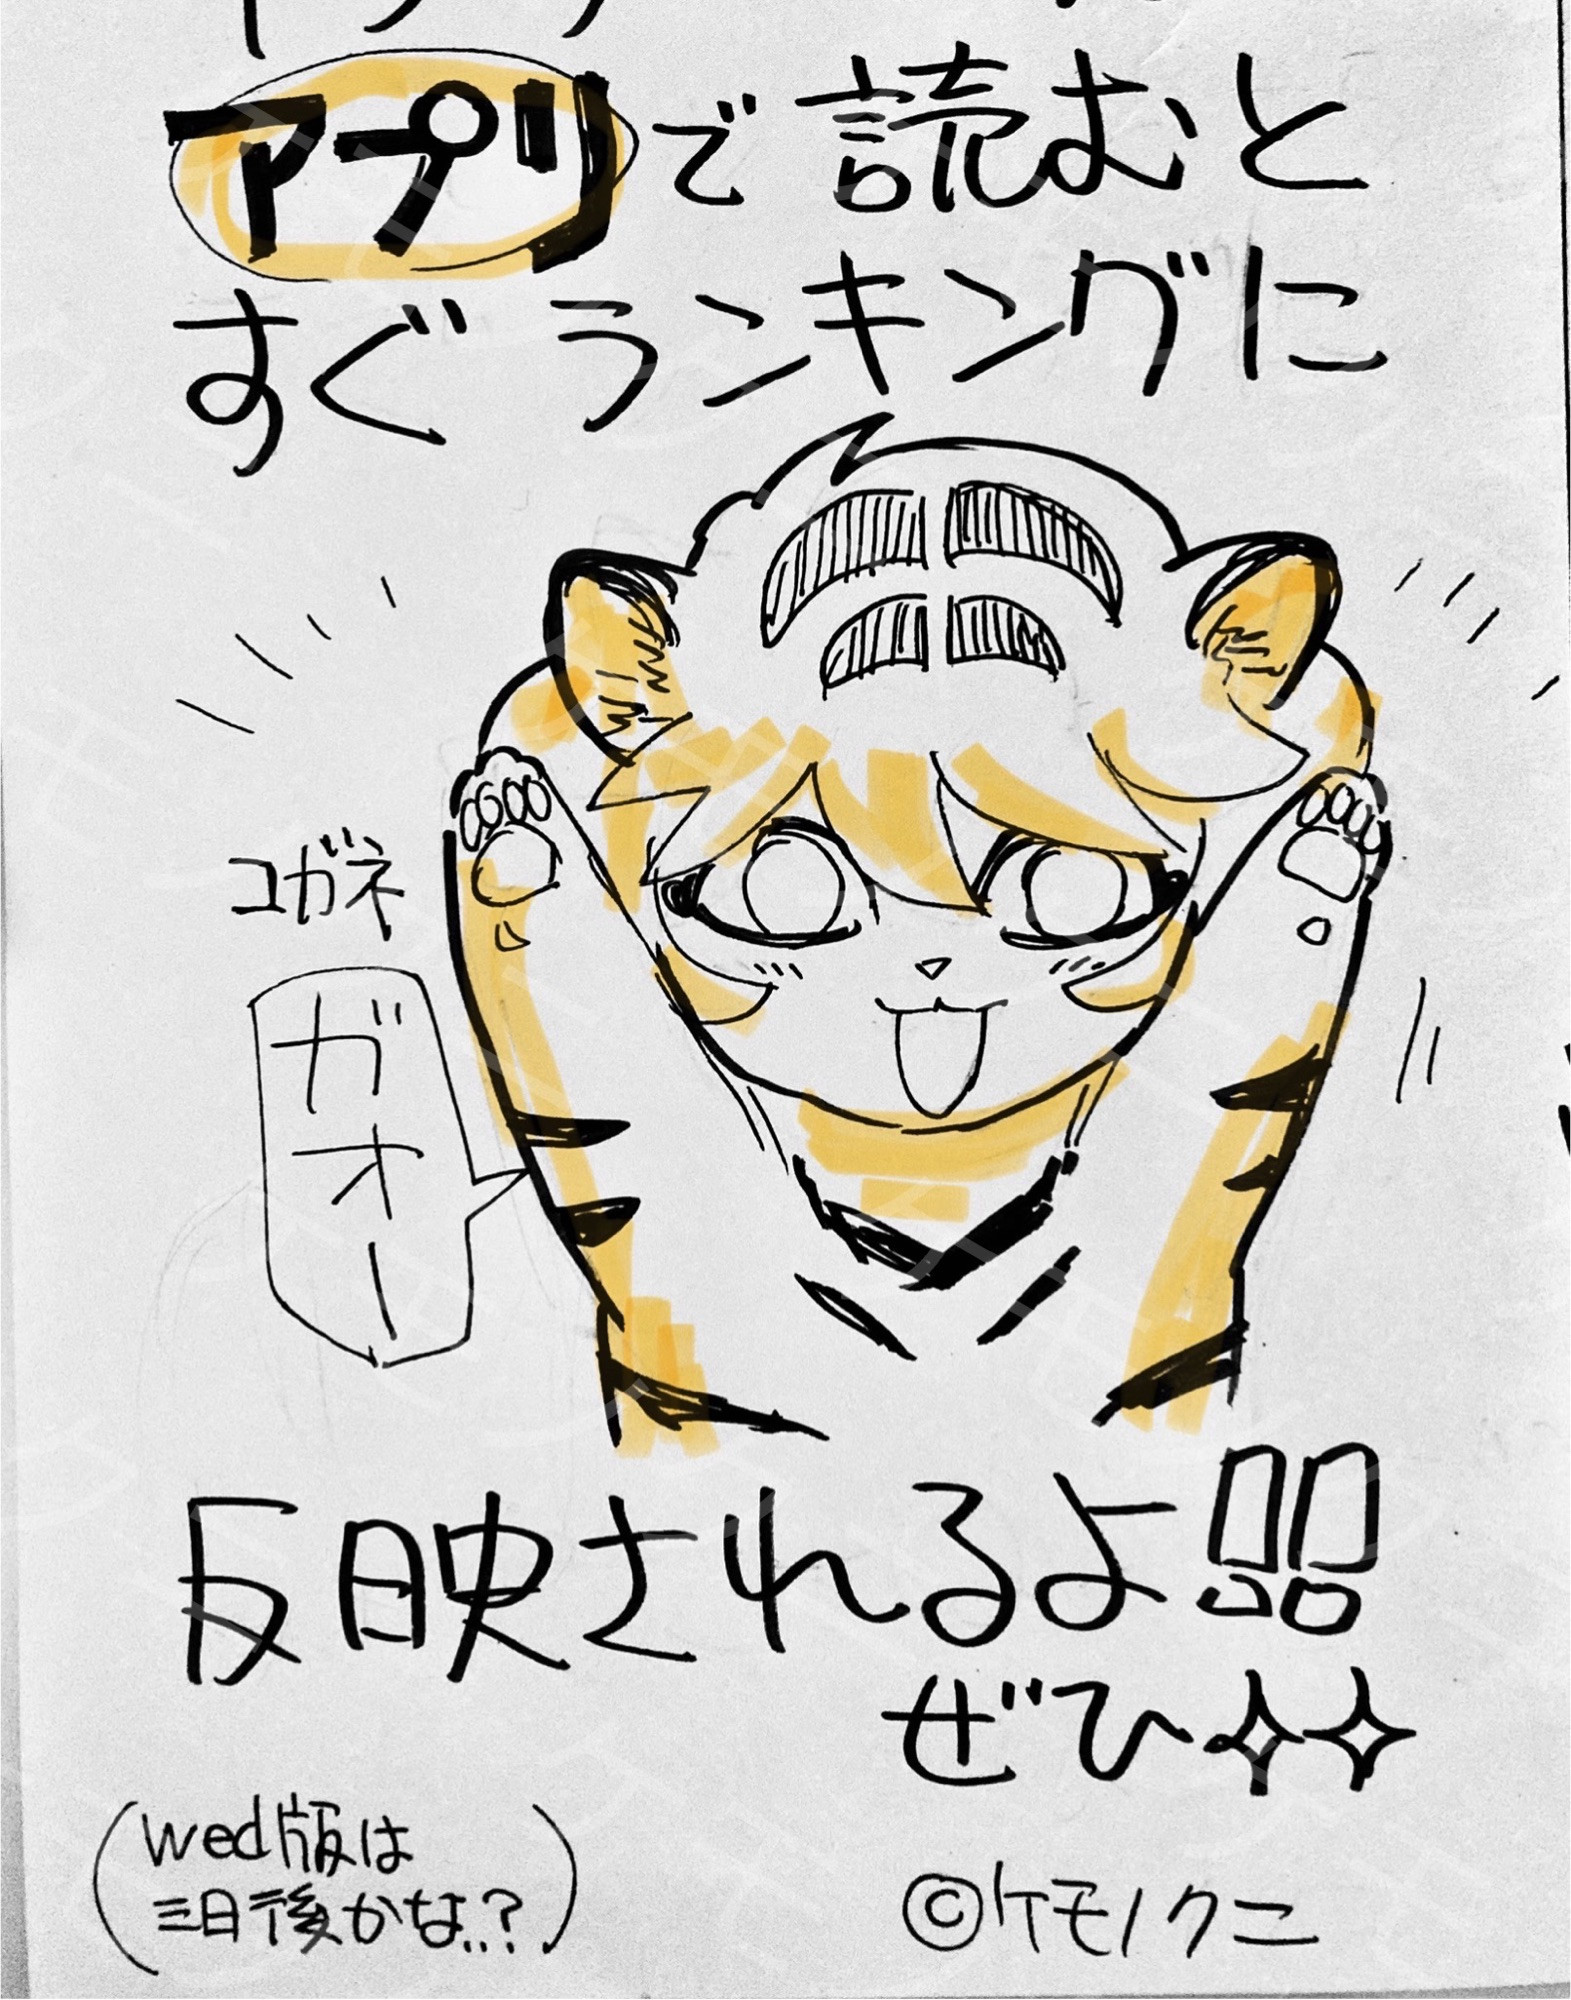 アプリで読むと
すぐランキングに
コガネ
ガオー
反映されるよ!!
ぜひ✧✧
(wed版は
三日後かな..?)
©ケモノクニ